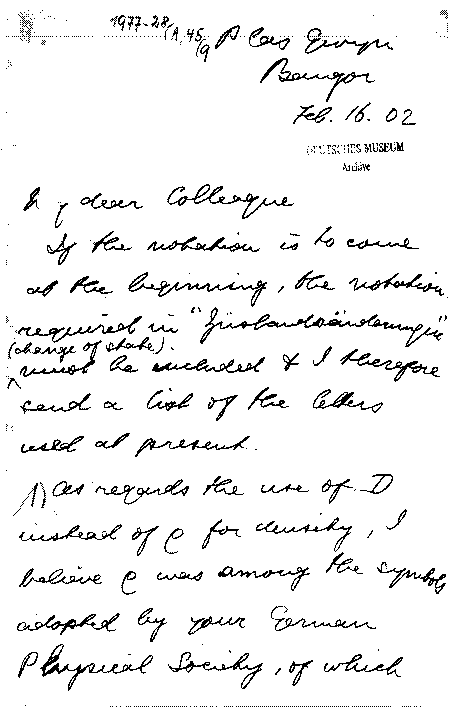 1977-28/A,45/9
Plas Gwyn
Bangor
Feb. 16. 02
DEUTSCHES MUSEUM
Archive
My dear Colleague
If the notation is to come
at the beginning, the notation
required in "Zustandsänderungen"
(change of state).
must be included & I therefore
send a list of the letters
used at present.
1) As regards the use of D
instead of ρ for density, I
believe ρ was among the symbols
adopted by your German
Physical Society, of which